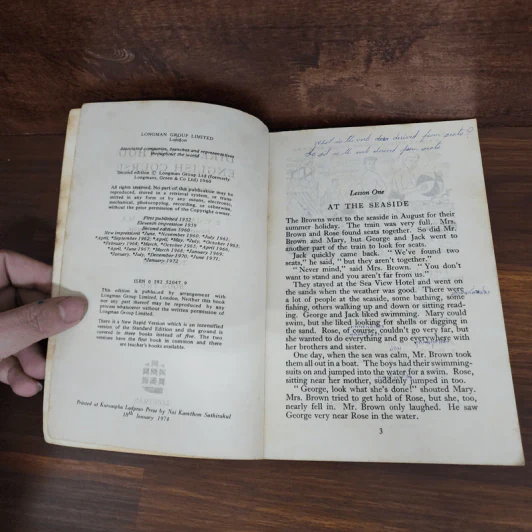 LONGMAN GROUP LIMITED
London
Associated companies, branches and representatives
throughout the world
Second edition © Longman Group Ltd (formerly
Longmans, Green & Co Ltd) 1960
All rights reserved. No part of this publication may be
reproduced, stored in a retrieval system, or trans-
mitted in any form or by any means, electronic,
mechanical, photocopying, recording, or otherwise,
without the prior permission of the Copyright owner.
First published 1952
Eleven impression 1959
Second edition 1960
New impressions
January 1972
ISBN 0 582 52047 9
This edition is published by arrangement with
Longman Group Limited, London. Neither this book
nor any part thereof may be reproduced by any
process whatsoever without the written permission of
Longman Group Limited.
There is a New Rapid Version which is an intensified
version of the Standard Edition and the ground is
covered in three books instead of five. The two
versions have the first book in common and there
are teacher's books available.
Printed at Kurusapha Ladprao Press by Nai Kamthon Sathirakul
January 1974
Lesson One
AT THE SEASIDE
The Browns went to the seaside in August for their
summer holiday. The train was very full. Mrs.
Brown and Rose found seats together. So did Mr.
Brown and Mary, but George and Jack went to
another part of the train to look for seats.
Jack quickly came back. "We've found two
seats," he said, "but they aren't together."
"Never mind," said Mrs. Brown. "You don't
want to stand and you aren't far from us."
They stayed at the Sea View Hotel and went on
the sands when the weather was good. There were
a lot of people at the seaside, some bathing, some
fishing, others walking up and down or sitting read-
ing. George and Jack liked swimming. Mary could
swim, but she liked looking for shells or digging in
the sand. Rose, of course, couldn't go very far, but
she wanted to do everything and go everywhere with
her brothers and sister.
One day, when the sea was calm, Mr. Brown took
them all out in a boat. The boys had their swimming-
suits on and jumped into the water for a swim. Rose,
sitting near her mother, suddenly jumped in too.
"George, look what she's done!" shouted Mary.
Mrs. Brown tried to get hold of Rose, but she, too,
nearly fell in. Mr. Brown only laughed. He saw
George very near Rose in the water.
3